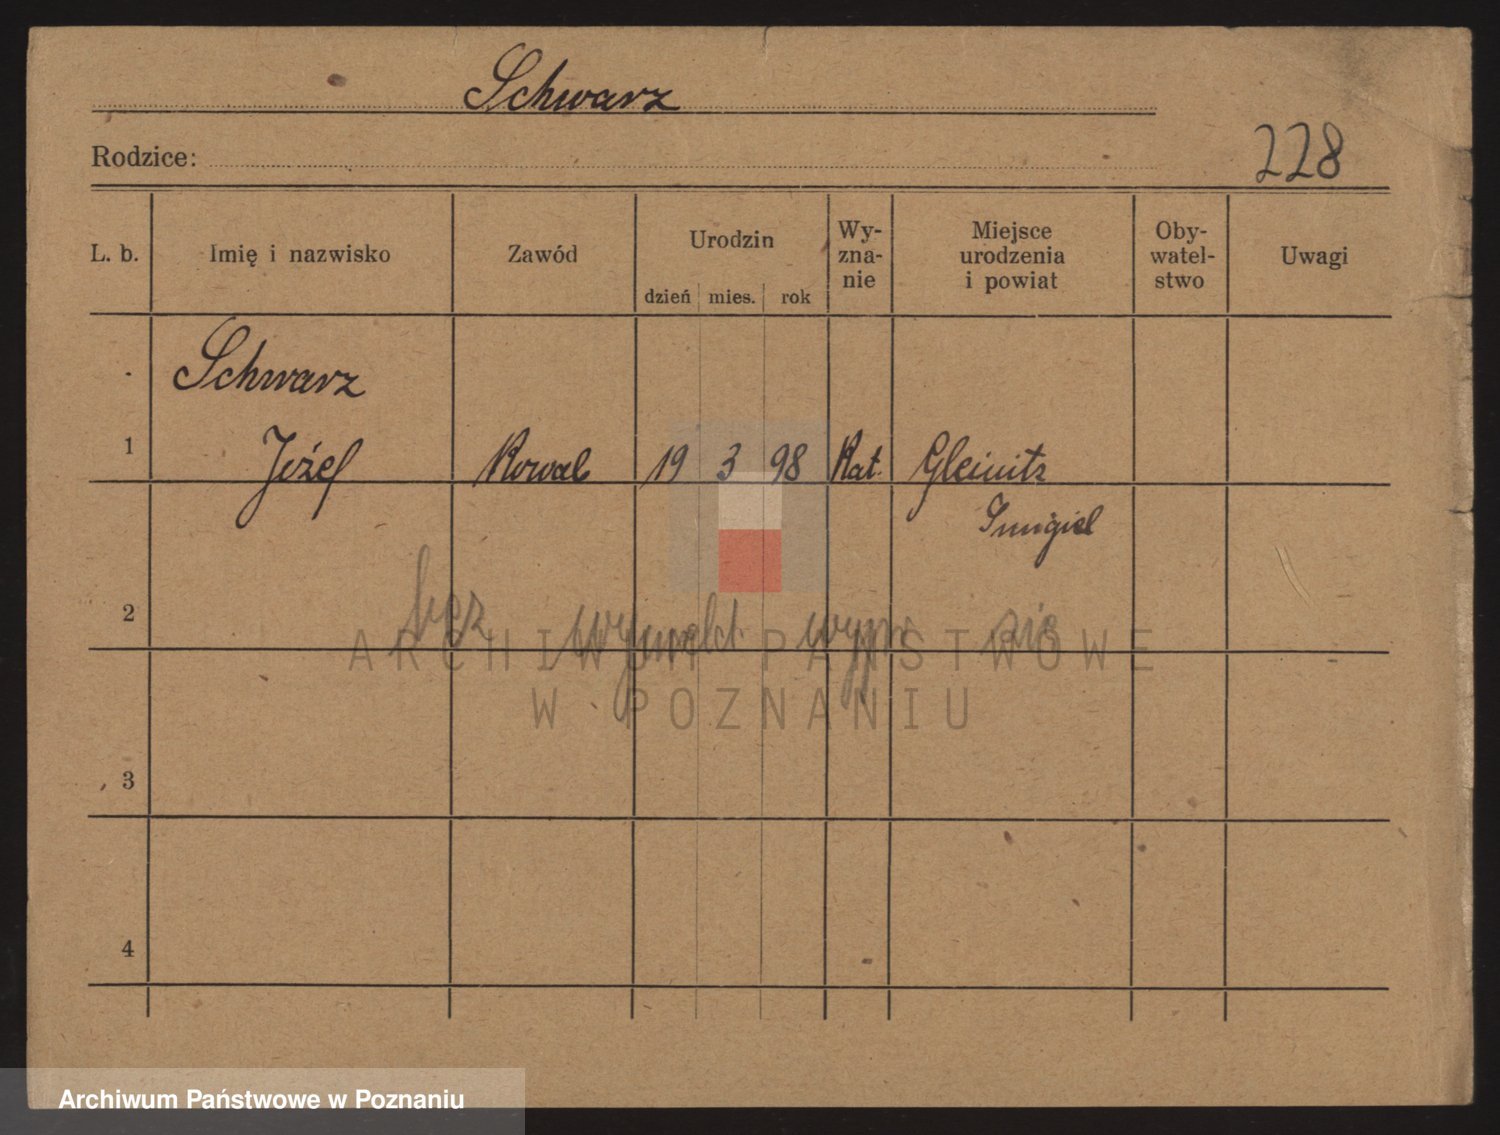 Schwarz
Rodzice:
228
L. b. Imię i nazwisko Zawód Urodzin dzień mies. rok Wy-zna-nie Miejsce urodzenia i powiat Oby-watel-stwo Uwagi
Schwarz
1 Józef Kowal 19 3 98 Kat. Gleinitz
Smigiel
2 bez się
ARCHIWUM PAŃSTWOWE
W POZNANIU
3
4
Archiwum Państwowe w Poznaniu